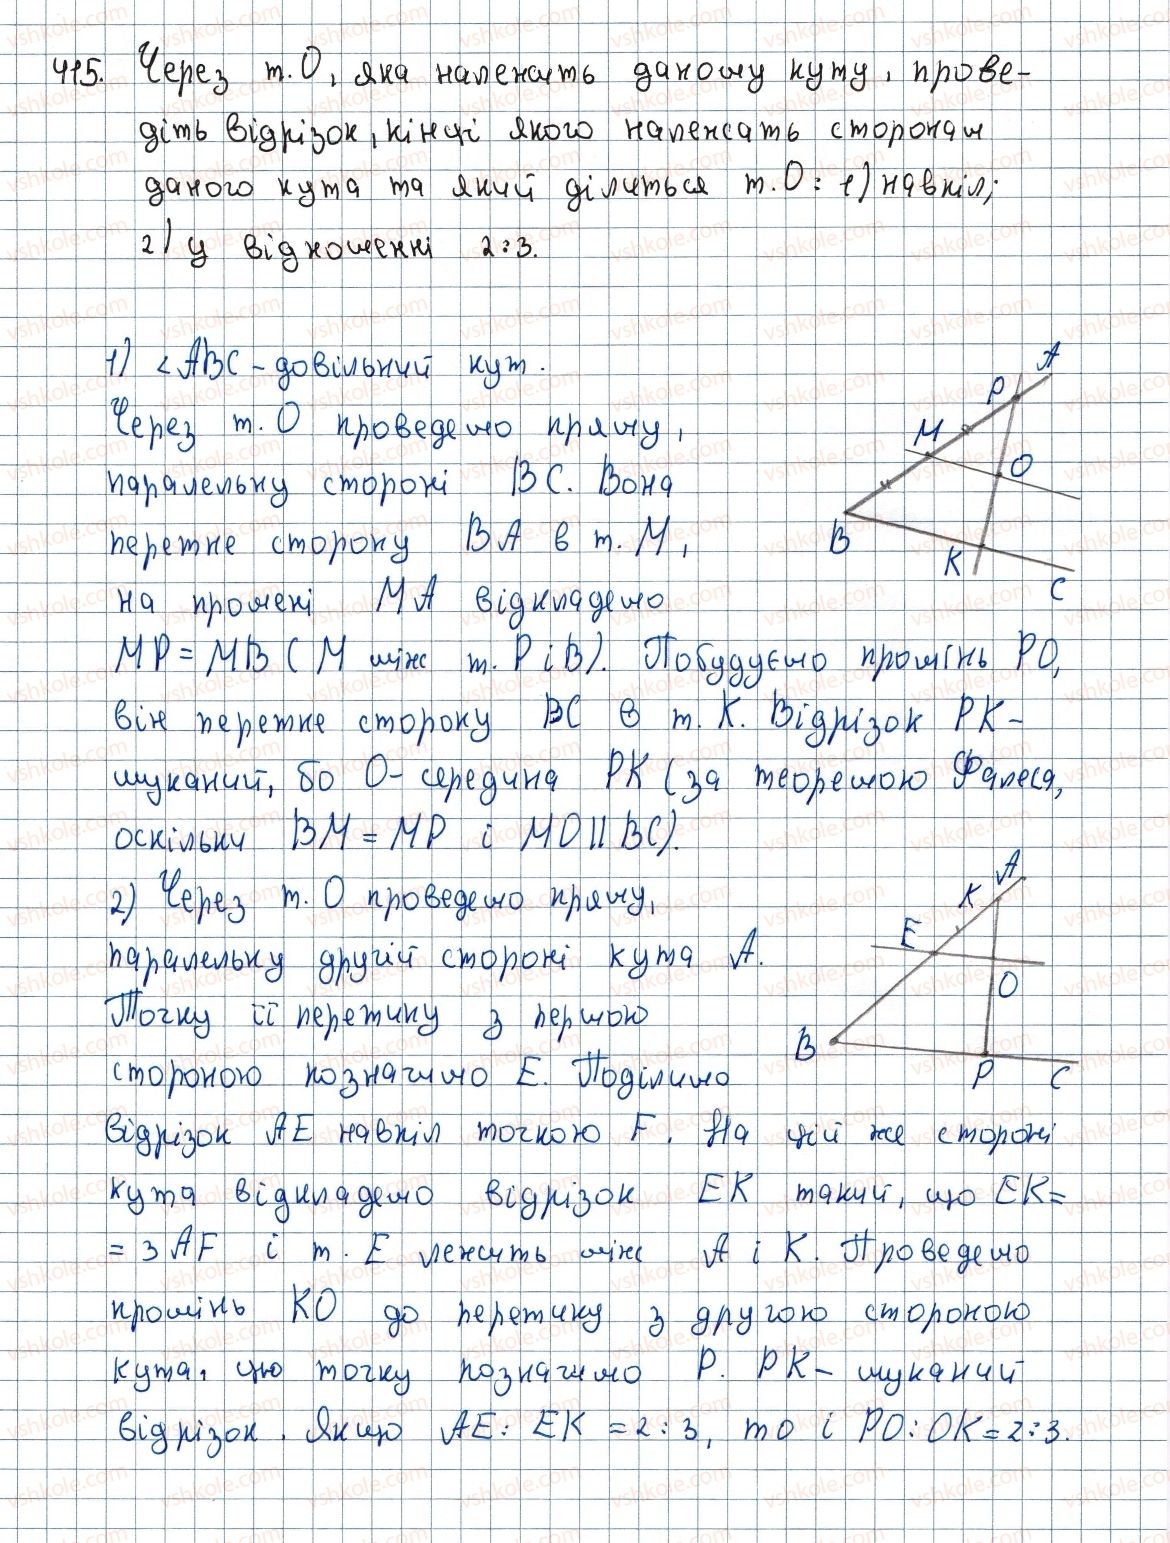 415. Через т. О, яка належить даному куту, прове-
діть відрізок, кінці якого належать сторонам
даного кута та який ділиться т. О: 1) навпіл;
2) у відношенні 2:3.
1) ∠ABC - довільний кут.
Через т. О проведемо пряму,
паралельну стороні BC. Вона
перетне сторону BA в т. M,
на промені MA відкладемо
MP = MB (M між т. P і B). Побудуємо промінь PO,
він перетне сторону BC в т. K. Відрізок PK -
шуканий, бо O - середина PK (за теоремою Фалеса,
оскільки BM = MP і MO || BC).
A
P
M
O
B
K
C
2) Через т. O проведемо пряму,
паралельну другій стороні кута A.
Точку її перетину з першою
стороною позначимо E. Поділимо
відрізок AE навпіл точкою F. На цій же стороні
кута відкладемо відрізок EK такий, що EK=
= 3AF і т. E лежить між A і K. Проведемо
промінь KO до перетину з другою стороною
кута, цю точку позначимо P. PK - шуканий
відрізок. Якщо AE : EK = 2 : 3, то і PO : OK = 2 : 3.
A
K
E
O
B
P
C
vshkole.com